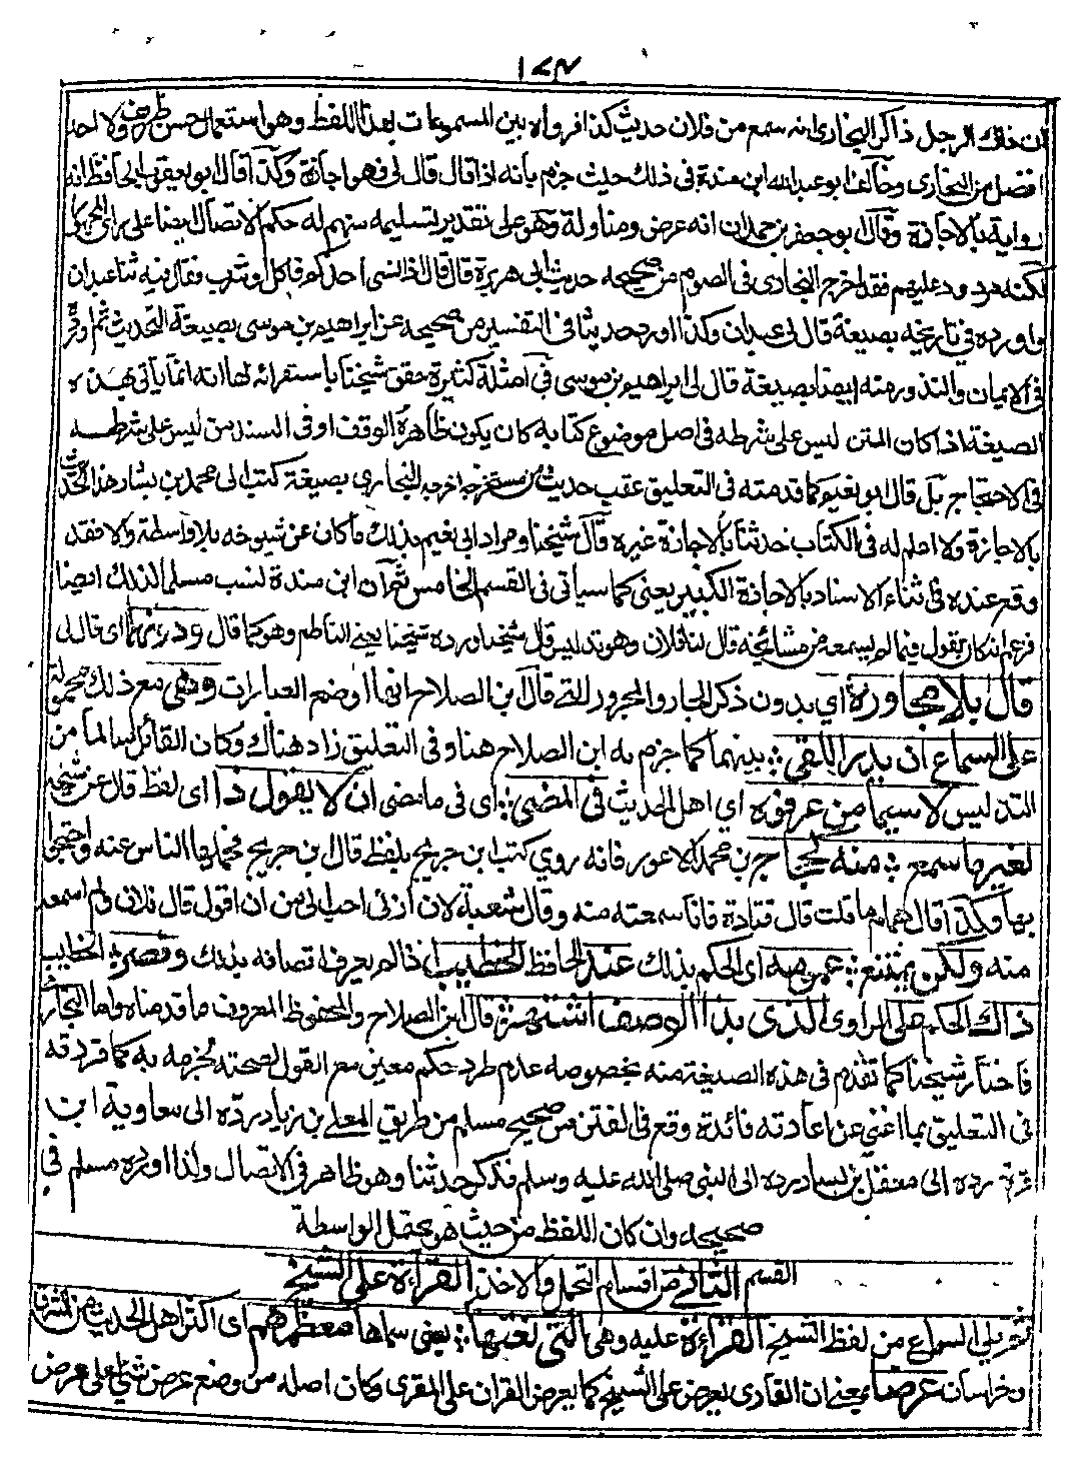 ١٧٣
ان خالك الرجل ذاكر البخاري انه سمع من فلان حديث كذا فرواه بين المسموعات بهذا اللفظ وهو استعمال حسن ظريف ولا احد
افضل من البخاري وخالف ابو عبد الله ابن مندة في ذلك حيث جزم بانه اذا قال قال لي فهو اجازة وكذا قال ابو يعقوب الحافظ انه
رواية بالاجازة وقال ابو جعفر بن حمدان انه عرض ومناولة وهو على تقدير تسليمه منهم له حكم الاتصال ايضا على راي الجمهور
لكنه مردود عليهم فقد اخرج البخاري في الصوم من صحيحه حديث ابي هريرة قال قال اذا نسي احدكم فاكل وشرب فقال فيه ثنا عبدان
واورده في تاريخه بصيغة قال لي عبدان وكذا اورد حديثا في التفسير من صحيحه عن ابراهيم بن موسى بصيغة التحديث ثم اورده
في الايمان والنذور منه ايضا بصيغة قال لي ابراهيم بن موسى في امثلة كثيرة حقق شيخنا باستقرائه لها انه انما ياتي بهذه
الصيغة اذا كان المتن ليس على شرطه في اصل موضوع كتابه كان يكون ظاهره الوقف او في السند من ليس على شرطه
في الاحتجاج بل قال ابو نعيم كما قدمته في التعليق عقب حديث من مستخرجه اخرجه البخاري بصيغة كتب الي محمد بن بشار هذا الحديث
بالاجازة ولا اعلم له في الكتاب حدثنا بالاجازة غيره قال شيخنا ومراد ابي نعيم بذلك ما كان عن شيوخه بلا واسطة والا فقد
وقع عنده في اثناء الاسناد بالاجازة الكبير يعني كما سياتي في القسم الخامس ثم ان ابن مندة نسب مسلما لذلك ايضا
فزعم انه كان يقول فيما لم يسمعه من مشائخه قال لنا فلان وهو تدليس قال شيخنا ورده شيخنا يعني الناظم وهو كما قال ودونهما اي قال لي
قال بلا مجاورة اي بدون ذكر الجار والمجرور التي قال ابن الصلاح انها اوضع العبارات وهي مع ذلك محمولة
على السماع ان يدر اللقي : بينهما كما جزم به ابن الصلاح هنا وفي التعليق زاد هناك وكان القائل سالما من
التدليس لا سيما من عرفوه اي اهل الحديث في المضي : اي في ما مضى ان لا يقول ذا اي لفظ قال عن شيخه
لغير ما سمع : منه كحجاج بن محمد الاعور فانه روي كتب ابن جريج بلفظ قال ابن جريج فحملها الناس عنه واحتجوا
بها وكذا قال همام ما قلت قال قتادة فانا سمعته منه وقال شعبة لان ازني احب الي من ان اقول قال فلان ولم اسمعه
منه ولكن يمتنع : عمومه اي الحكم بذلك عند الحافظ الخطيب اذا لم يعرف اتصافه بذلك وقصر : الخطيب
ذاك الحكم على الراوي الذي بذا الوصف اشتهر : قال ابن الصلاح والمحفوظ المعروف ما قدمناه واما البخاري
فاختار شيخنا كما تقدم في هذه الصيغة منه بخصوصه عدم طرد حكم معين مع القول لصحته لجزمه به كما قررته
في التعليق بما اغنى عن اعادته فائدة وقع في الفتن من صحيح مسلم من طريق المعلى بن زياد رده الى معاوية ابن
قرة رده الى معقل بن يسار رده الى النبي صلى الله عليه وسلم فذكر حدثنا وهو ظاهر في الاتصال ولذا اورده مسلم في
صحيحه وان كان اللفظ من حيث هو يحتمل الواسطة
القسم الثاني من اقسام التحمل والاخذ القراءة على الشيخ
ثم يلي السماع من لفظ الشيخ القراءة عليه وهي التي نعتها : يعني سماها معظمهم اي اكثر اهل الحديث من الشرق
وخراسان عرضا بمعنى ان القاري يعرض على الشيخ كما يعرض القران على المقرى وكان اصله من وضع عرض شئ على عرض